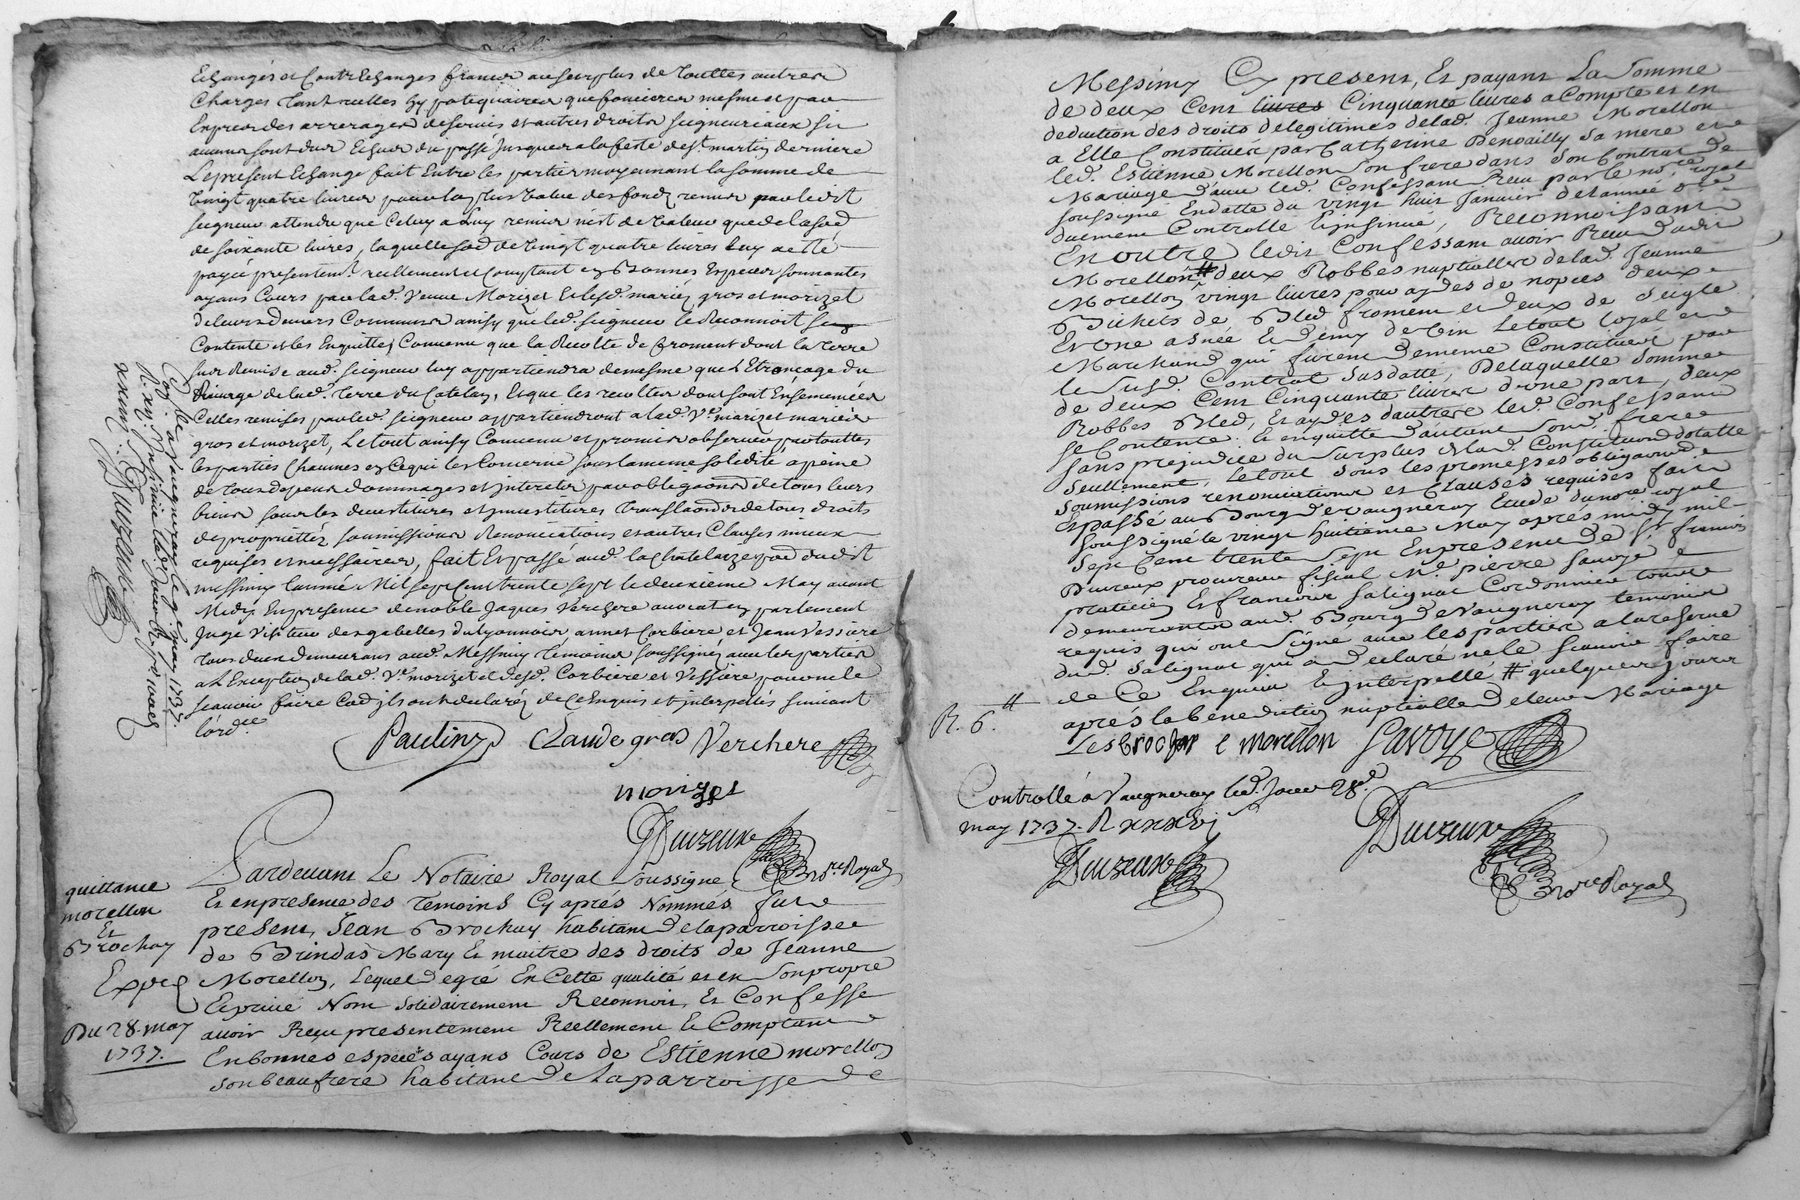 Echanges et Contrechanges francs au surplus de touttes autres
Charges tant reelles hypotequaires que foncieres mesme et par
Exprés des arrerages de servis et autres droits seigneuriaux si
aucuns sont dus Echus du passé jusques a la feste de st martin derniere
Le present Echange fait Entre les parties moyennant la somme de
vingt quatre livres pour la plus value des fonds remis par ledit
seigneur attendu que celuy a Luy remis n'est de valeur que de la somme
de soixante livres, laquelle somme de vingt quatre livres luy a etté
payée presentemt. reellement et Comptant en Bonnes Especes sonnantes
ayans Cours par lad. veuve Morizet et lesd. mariés gros et morizet
de leurs deniers Communs ainsy que led. seigneur le Reconnoit s'en
Contente et les Enquitte, Convenu que la Recolte de froment dont la terre
sus Remise aud. seigneur luy appartiendra de mesme que l'Etroncage du
Rivurge de lad. Terre du Catelan, Et que les recoltes dont sont Ensemencés
Celles remises par led. seigneur appartiendront a lad. Ve. morizet et mariés
gros et morizet, Le tout ainsy Convenu et promis observer par touttes
les parties Chacunes en ce qui les Concerne sous la meme solidité, a peine
de tous depens dommages et interets par obligaõn de tous leurs
biens sous les devestitures et investitures translaõn de tous droits
de proprietté, soumissions Renonciations et autres Clauses mieux
requises et necessaires, fait Et passé aud. la Chatelaze pard. dudit
messimy l'année Mil sept Cent trente sept le deuxieme May avant
Midy En presence de noble Jaques Verchere avocat en parlement
Juge Visiteur des gabelles du lyonnois, annet Corbiere et Jean Vessiere
tous deux demeurans aud. Messimy temoins soussignés avec les parties
a L'Exception de lad. Ve. morizet et desd. Corbiere et Vessiere pour ne le
scavoir faire Ce qu'ils ont declarés de ce Enquis et interpellés suivant
l'ordce.
Paulin Claude gros Verchere
morizet
Duvzeux
nore. Royal
Conllé a vaugneray le 9e may 1737.
R. xij s. insinué led. jour
quittance
morellon
Et
Brochay
Expe
Du 28. may
1737.
Pardevant Le Notaire Royal soussigné
Et en presence des témoins Cy aprés Nommés fut
present, Jean Brochay habitant de la parroisse
de Brindas Mary Et maitre des droits de Jeanne
Morellon, Lequel de gré En Cette qualité et en son propre
Et privé Nom solidairement Reconnoit, Et Confesse
avoir Reçu presentement Réellement Et Comptant
En bonnes especes ayans Cours de Estienne morellon
son beaufrere habitant de La parroisse de
Messimy Cy present, Et payant La Somme
de deux Cent livres Cinquante livres a Compte et en
deduction des droits de legitimes de lad. Jeanne Morellon
a Elle Constitués par Catherine Denoailly sa mere et
led. Estienne Morellon son frere dans son Contrat de
Mariage d'avec led. Confessant Reçu par le nore. royal
soussigné En datte du vingt huit Janvier de l'année
duement Controllé Et insinué, Reconnoissant
En outre ledit Confessant avoir Reçu dudit
Morellon # deux Robbes nuptialles de lad. Jeanne
Morellon vingt livres pour aydes de nopces deux
Bichets de Bled froment et deux de seigle
Et une asnée Et demy de vin Le tout loyal et
Marchand qui furent de meme Constitués par
le susd. Contrat susdatté, De laquelle somme
de deux Cent Cinquante livres d'une part, deux
Robbes Bled, Et aydes d'autre led. Confessant
se Contente Et enquitte d'autant sond. frere
sans prejudice du surplus de lad. Constitution dotalle
seullement, Le tout sous les promesses obligaõns
soumissions renonciations et Clauses requises fait
Et passé au Bourg de vaugneray Etude du nore. royal
soussigné le vingt huitieme May aprés midy mil
sept Cent trente sept En presence de sr. francois
Duvzeux procureur fiscal Me. pierre savoye
praticien Et francois salignat Cordonnier tous
demeurants aud. Bourg de Vaugneray temoins
requis qui ont signé avec les parties a la reserve
dud. salignat qui a declaré ne le scavoir faire
de Ce Enquis Et interpellé # quelques jours
aprés la benediction nuptialle de leur Mariage
R. 6.tt
Les brochay e morellon Savoye
Controllé a Vaugneray led. Jour 28e.
may 1737. R xxxvj s
Duvzeux
Duvzeux
nore. Royal